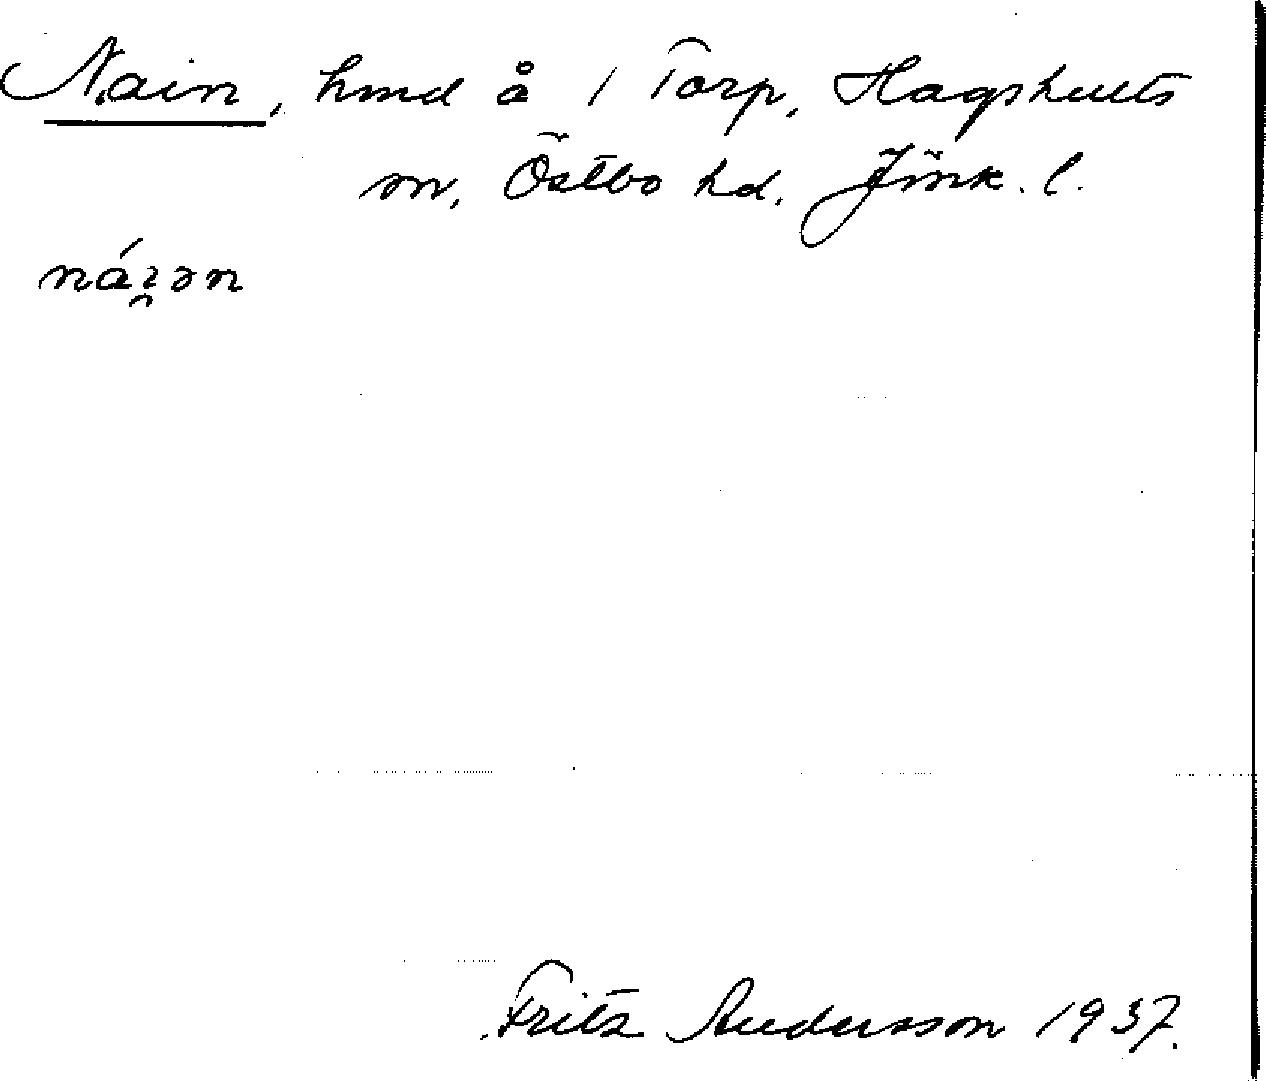 Nain, hmd å 1 Torp, Hagshults
sn, Östbo hd, Jönk. l.
Fritz Andersson 1937.